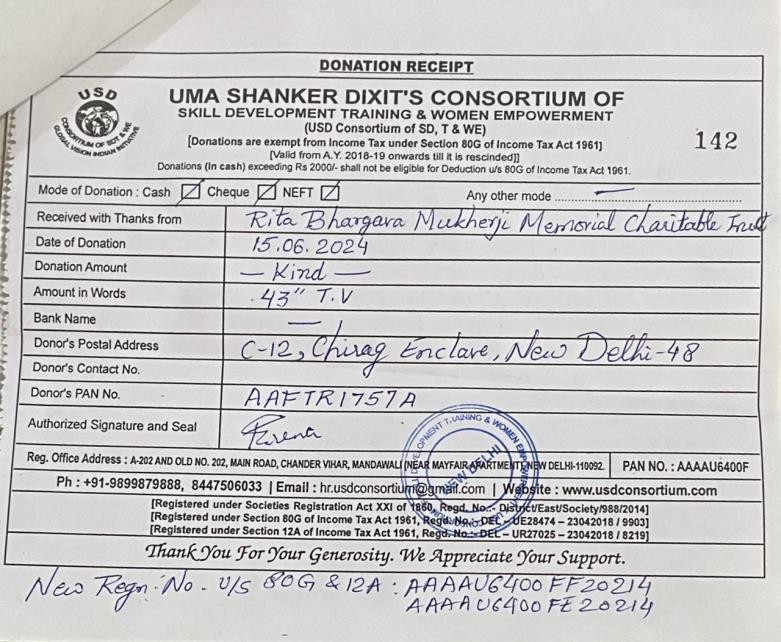 DONATION RECEIPT
USD
CONSORTIUM OF SDT & WE
GLOBAL VISION INDIAN INITIATIVE
UMA SHANKER DIXIT'S CONSORTIUM OF
SKILL DEVELOPMENT TRAINING & WOMEN EMPOWERMENT
(USD Consortium of SD, T & WE)
[Donations are exempt from Income Tax under Section 80G of Income Tax Act 1961]
142
[Valid from A.Y. 2018-19 onwards till it is rescinded]]
Donations (In cash) exceeding Rs 2000/- shall not be eligible for Deduction u/s 80G of Income Tax Act 1961.
Mode of Donation : Cash Cheque NEFT Any other mode .......... — ..........
Received with Thanks from Rita Bhargava Mukherji Memorial Charitable Trust
Date of Donation 15.06.2024
Donation Amount — Kind —
Amount in Words 43" T.V
Bank Name —
Donor's Postal Address C-12, Chirag Enclave, New Delhi-48
Donor's Contact No.
Donor's PAN No. AAFTR1757A
Authorized Signature and Seal
NEW DELHI
Reg. Office Address : A-202 AND OLD NO. 202, MAIN ROAD, CHANDER VIHAR, MANDAWALI (NEAR MAYFAIR APARTMENT), NEW DELHI-110092. PAN NO. : AAAAU6400F
Ph : +91-9899879888, 8447506033 | Email : hr.usdconsortium@gmail.com | Website : www.usdconsortium.com
[Registered under Societies Registration Act XXI of 1860, Regd. No.:- District/East/Society/988/2014]
[Registered under Section 80G of Income Tax Act 1961, Regd. No.: DEL – UE28474 – 23042018 / 9903]
[Registered under Section 12A of Income Tax Act 1961, Regd. No.:- DEL – UR27025 – 23042018 / 8219]
Thank You For Your Generosity. We Appreciate Your Support.
New Regn. No. U/S 80G & 12A : AAAAU6400FF20214
AAAAU6400FE20214